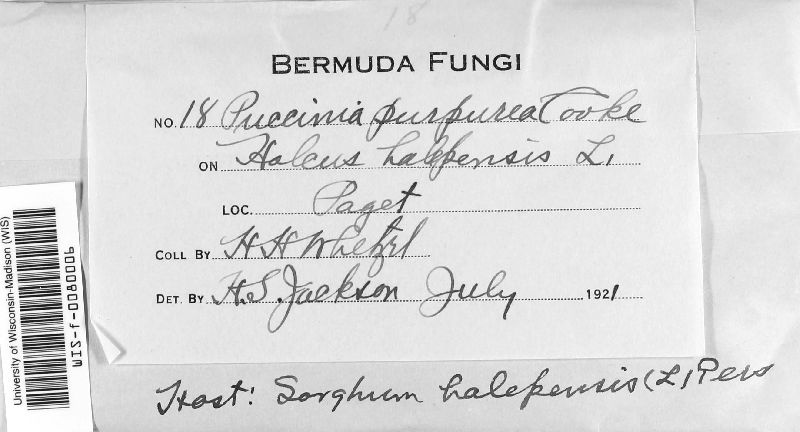 18
BERMUDA FUNGI
NO. 18 Puccinia purpurea Cooke
ON Holcus halepensis L.
LOC. Paget
COLL BY H H Whetzel
DET. BY H.S. Jackson July 1921
Host: Sorghum halepensis (L) Pers
University of Wisconsin-Madison (WIS)
WIS-f-0080006